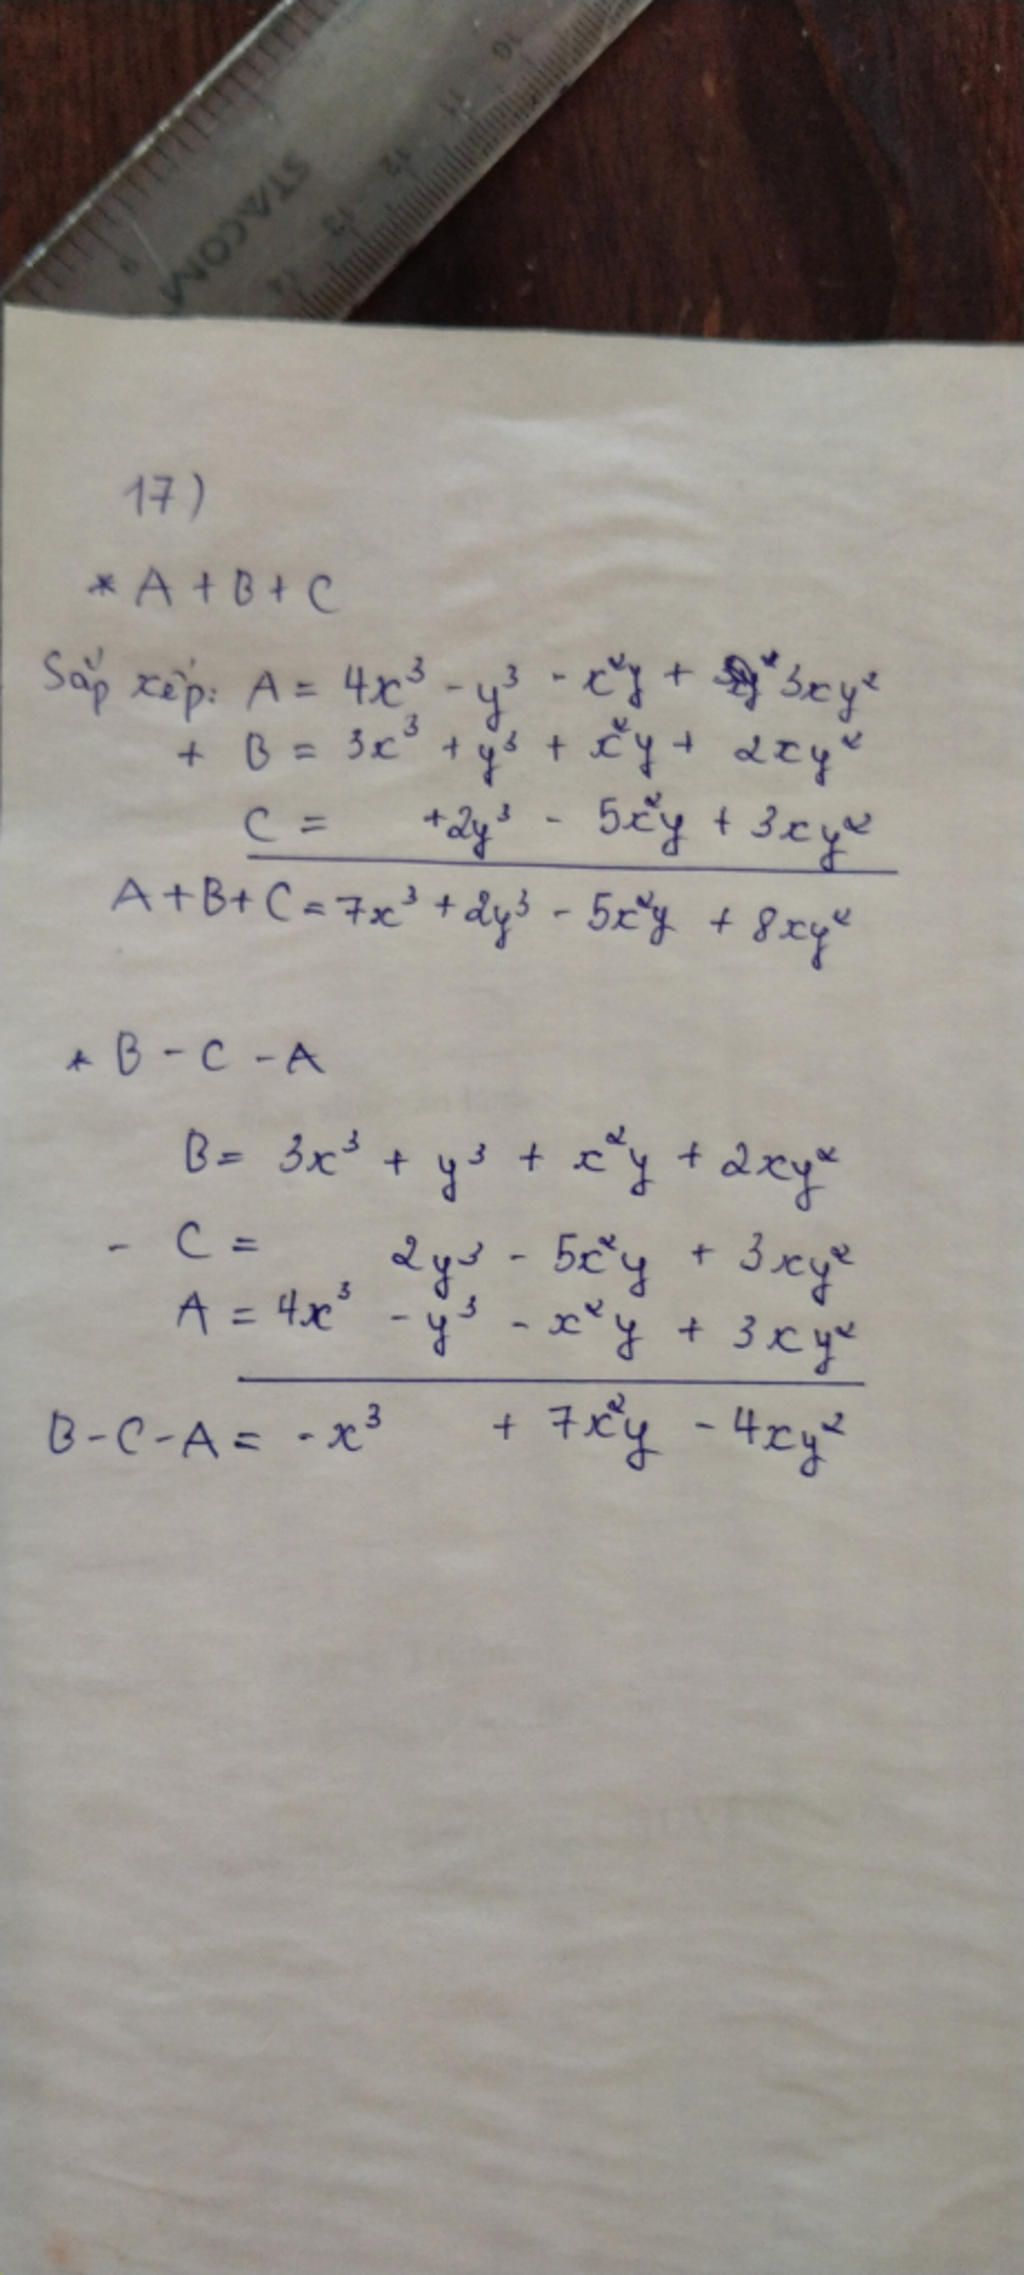 16
11
12
13
14
9
STACOM
17)
* A + B + C
Sắp xếp: A = 4x³ - y³ - x²y + 3xy²
+ B = 3x³ + y³ + x²y + 2xy²
C = +2y³ - 5x²y + 3xy²
A+B+C = 7x³ + 2y³ - 5x²y + 8xy²
* B - C - A
B = 3x³ + y³ + x²y + 2xy²
- C = 2y³ - 5x²y + 3xy²
A = 4x³ - y³ - x²y + 3xy²
B-C-A = -x³ + 7x²y - 4xy²